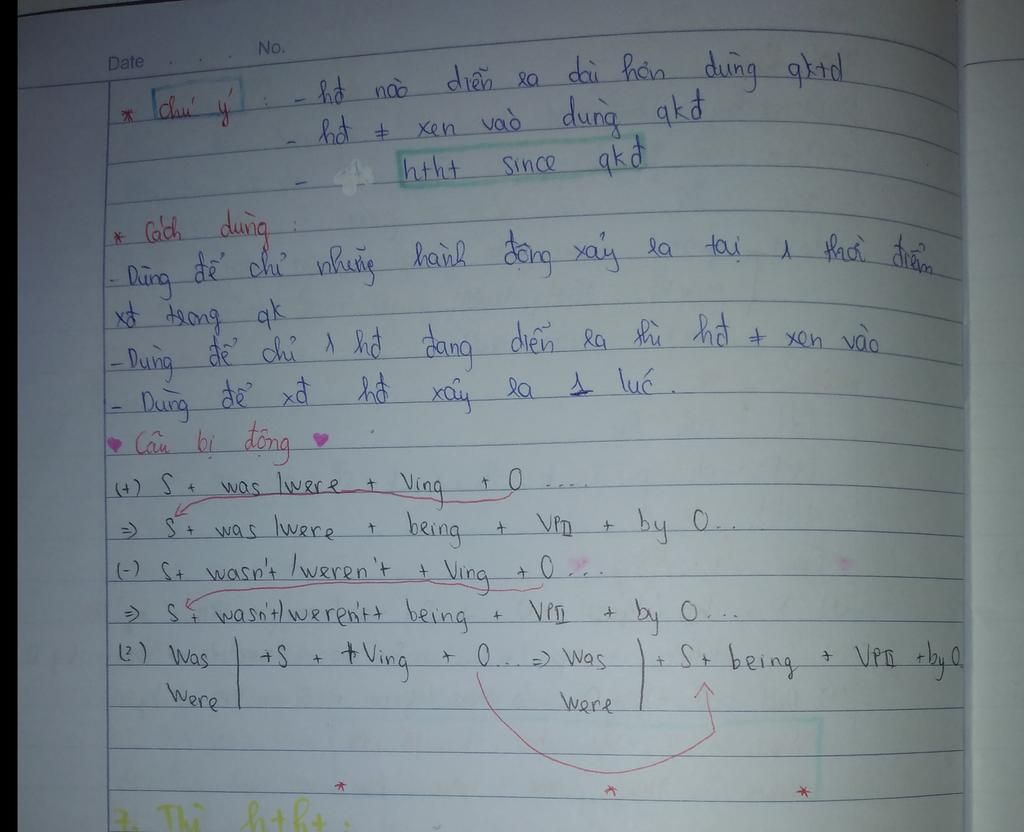 Date . . . No.
* Chú ý : - hđ nào diễn ra dài hơn dùng qktd
- hđ ≠ xen vào dùng qkđ
- htht since qkđ
* Cách dùng :
- Dùng để chỉ những hành động xảy ra tại 1 thời điểm
xđ trong qk
- Dùng để chỉ 1 hđ đang diễn ra thì hđ ≠ xen vào
- Dùng để xđ hđ xảy ra 1 lúc.
♥ Câu bị động ♥
(+) S + was /were + Ving + O ....
=> S + was /were + being + VPII + by O...
(-) S + wasn't /weren't + Ving + O ...
=> S + wasn't/weren't + being + VPII + by O...
(?) Was | + S + + Ving + O... => Was | + S + being + VPII + by O
Were | Were |
* * *
7. Thì htht :